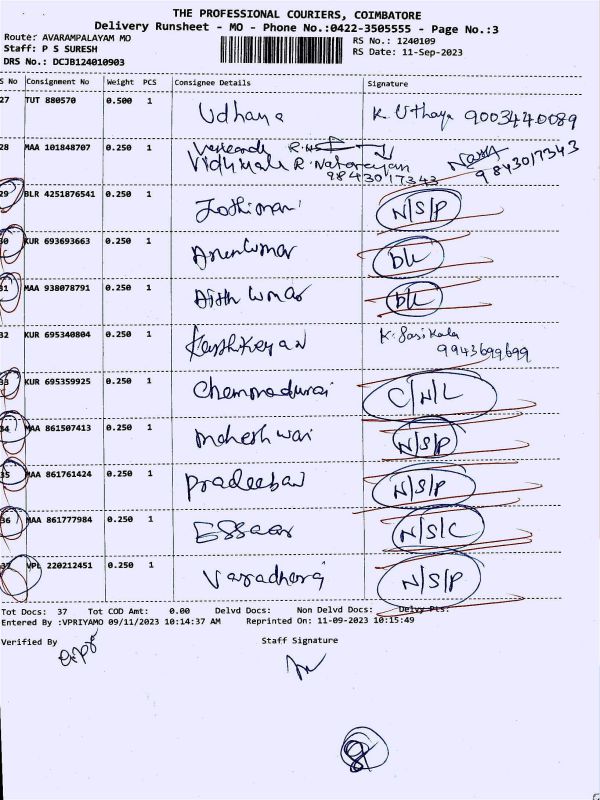 THE PROFESSIONAL COURIERS, COIMBATORE
Delivery Runsheet - MO - Phone No.:0422-3505555 - Page No.:3
Route: AVARAMPALAYAM MO
Staff: P S SURESH
DRS No.: DCJB124010903
RS No.: 1240109
RS Date: 11-Sep-2023
S No Consignment No Weight PCS Consignee Details Signature
27 TUT 880570 0.500 1 Udhaya K. Uthaya 9003440089
28 MAA 101848707 0.250 1
Vidhmale R. Natarayan 9843017343
9843017343
29 BLR 4251876541 0.250 1 Jothimani N/S/P
30 KUR 693693663 0.250 1 Arunkumar bk
31 MAA 938078791 0.250 1 Ajith kumar bk
32 KUR 695340804 0.250 1 Karthikeyan K. Sasikala
9943699699
33 KUR 695359925 0.250 1 Chemmadurai C/N/L
34 MAA 861507413 0.250 1 maheshwari N/S/P
35 MAA 861761424 0.250 1 Pradeeban N/S/P
36 MAA 861777984 0.250 1 ESSaar N/S/C
37 VPL 220212451 0.250 1 Varadharaj N/S/P
Tot Docs: 37 Tot COD Amt: 0.00 Delvd Docs: Non Delvd Docs: Delvy Pts:
Entered By :VPRIYAMO 09/11/2023 10:14:37 AM Reprinted On: 11-09-2023 10:15:49
Verified By Staff Signature
8